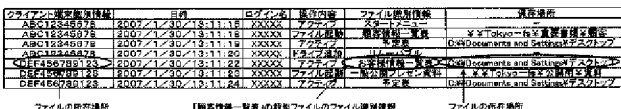 クライアント端末識別情報 日時 ログイン名 操作内容 ファイル識別情報 保存場所
ABC12345678 2007/1/30/13:11:15 XXXXX アクティブ スタートメニュー
ABC12345678 2007/1/30/13:11:16 XXXXX ファイル起動 顧客情報一覧表 ¥¥Tokyo-fs¥重要書類¥顧客
ABC12345678 2007/1/30/13:11:19 XXXXX アクティブ 予定表 D:¥Documents and Settings¥デスクトップ
ABC12345678 2007/1/30/13:11:20 XXXXX ドライブ追加 リムーバブル
DEF456789123 2007/1/30/13:11:22 XXXXX アクティブ お客様情報一覧表 D:¥Documents and Settings¥デスクトップ
DEF456789123 2007/1/30/13:11:23 XXXXX ファイル起動 一般公開プレゼン資料 ¥¥Tokyo-fs¥公開用¥資料
DEF456789123 2007/1/30/13:11:24 XXXXX アクティブ 予定表 D:¥Documents and Settings¥デスクトップ
ファイルの所在場所 「顧客情報一覧表」の類似ファイルのファイル識別情報 ファイルの所在場所